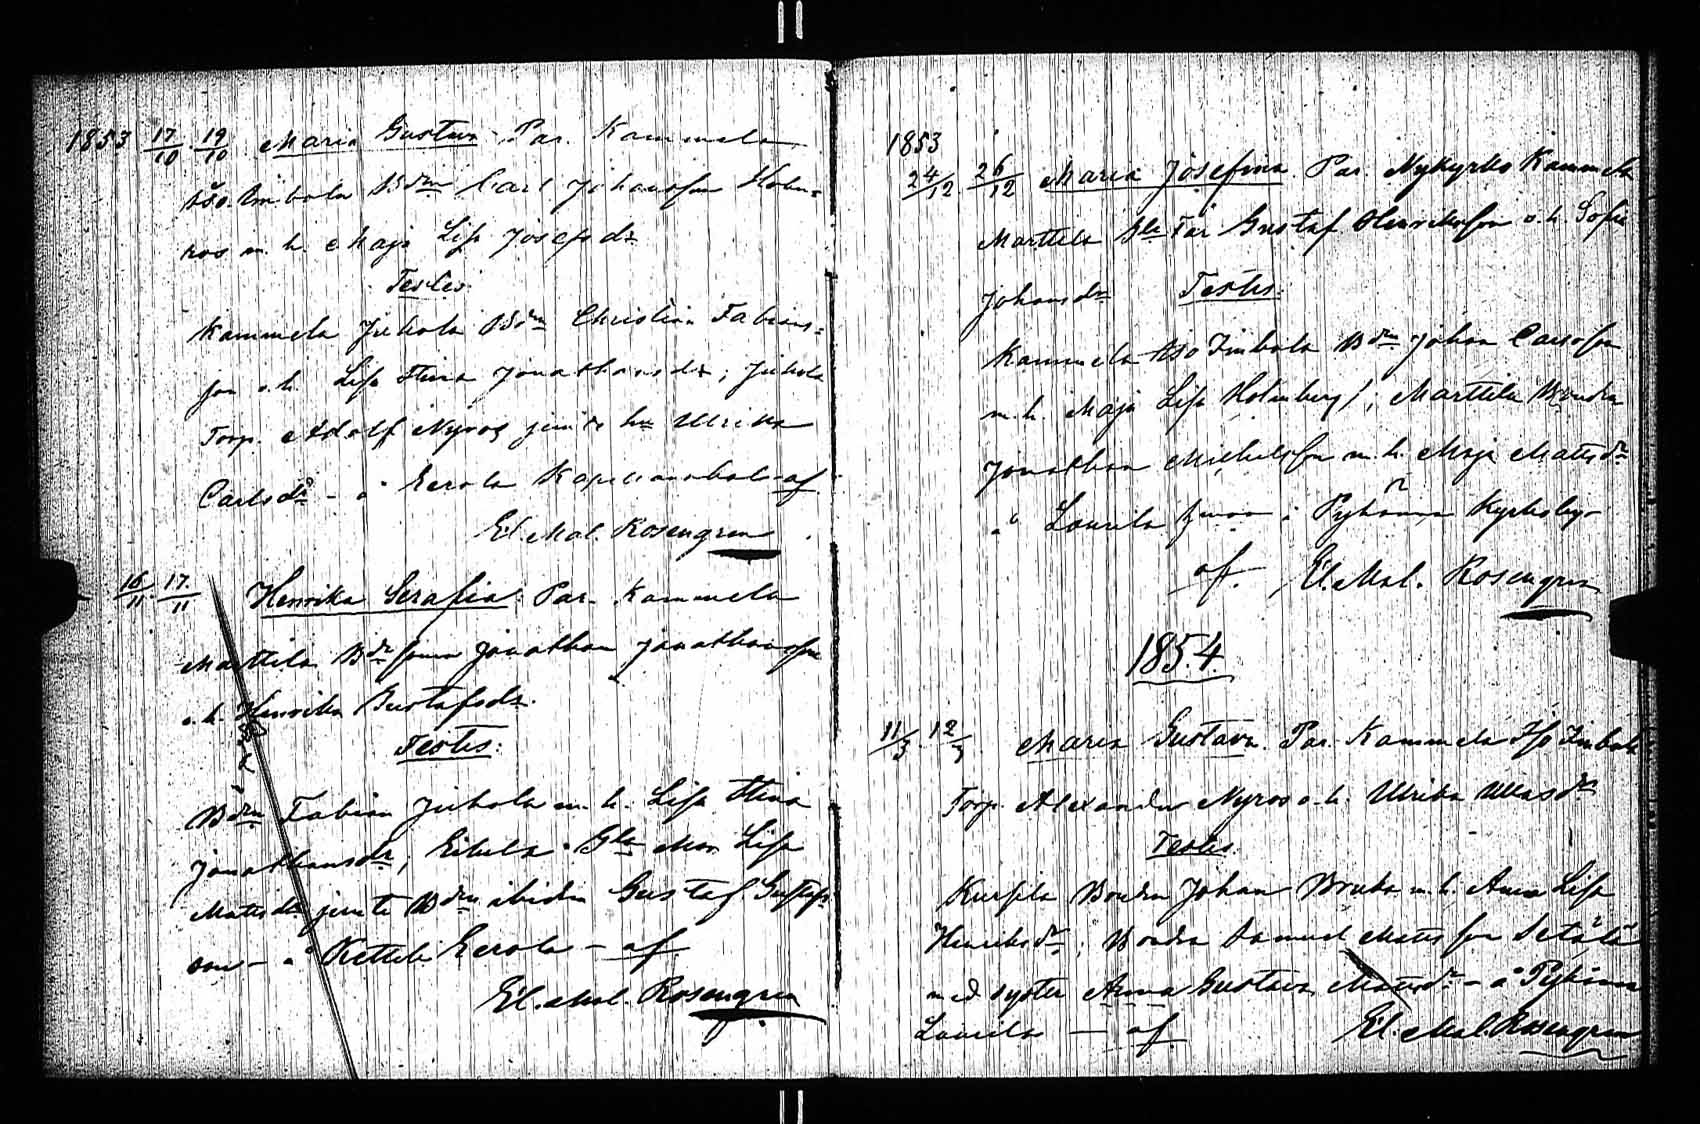 1853 17/10 19/10 Maria Gustava Par. Kammela
Iso Imbola Bdn Carl Johansson Holm=
ros m. h. Maja Lisa Josefsdr
Testes.
Kammela Juhola Bdn Christian Fabians=
son o. h. Lisa Stina Jonathansdr; Juhola
Torp. Adolf Nyros jemte hu Ulrika
Carlsdr - å Eerola af
El. Mal. Rosengren
16/11 17/11 Henrika Serafia Par. Kammela
Marttila Bdesonen Jonathan Jonathansson
o. h. Henrika Gustafsdr.
Testes:
Bdn Fabian Juhola m. h. Lisa Stina
Jonathansdr; Eikola Gla Mor Lisa
Mattsdr jemte Bdn ibidem Gustaf Gustafs
son - å Kettele Eerola - af
El. Mal. Rosengren
1853
24/12 26/12 Maria Josefina Par Nykyrko Kammela
Marttila Gla Far Gustaf Henriksson o. h. Sofia
Johansdr Testes:
Kammela Iso Imbola Bdn Johan Carlsson
m. h. Maja Lisa Holmberg; Marttila Bonden
Jonathan Michelsson m. h. Maja Mattsdr
å Laurila i Pyhäma Kyrkoby
af. El. Mal. Rosengren
1854
11/3 12/3 Maria Gustava. Par. Kammela Iso Imbola
Torp. Alexander Nyros o. h. Ulrika Ullasdr
Testes.
Kurjila Bonden Johan m. h. Anna Lisa
Henriksdr; Bonden Samuel Matsson Setälä
med syster Anna Gustava Matsdr - å Pyhäma
Laurila - af El. Mal. Rosengren